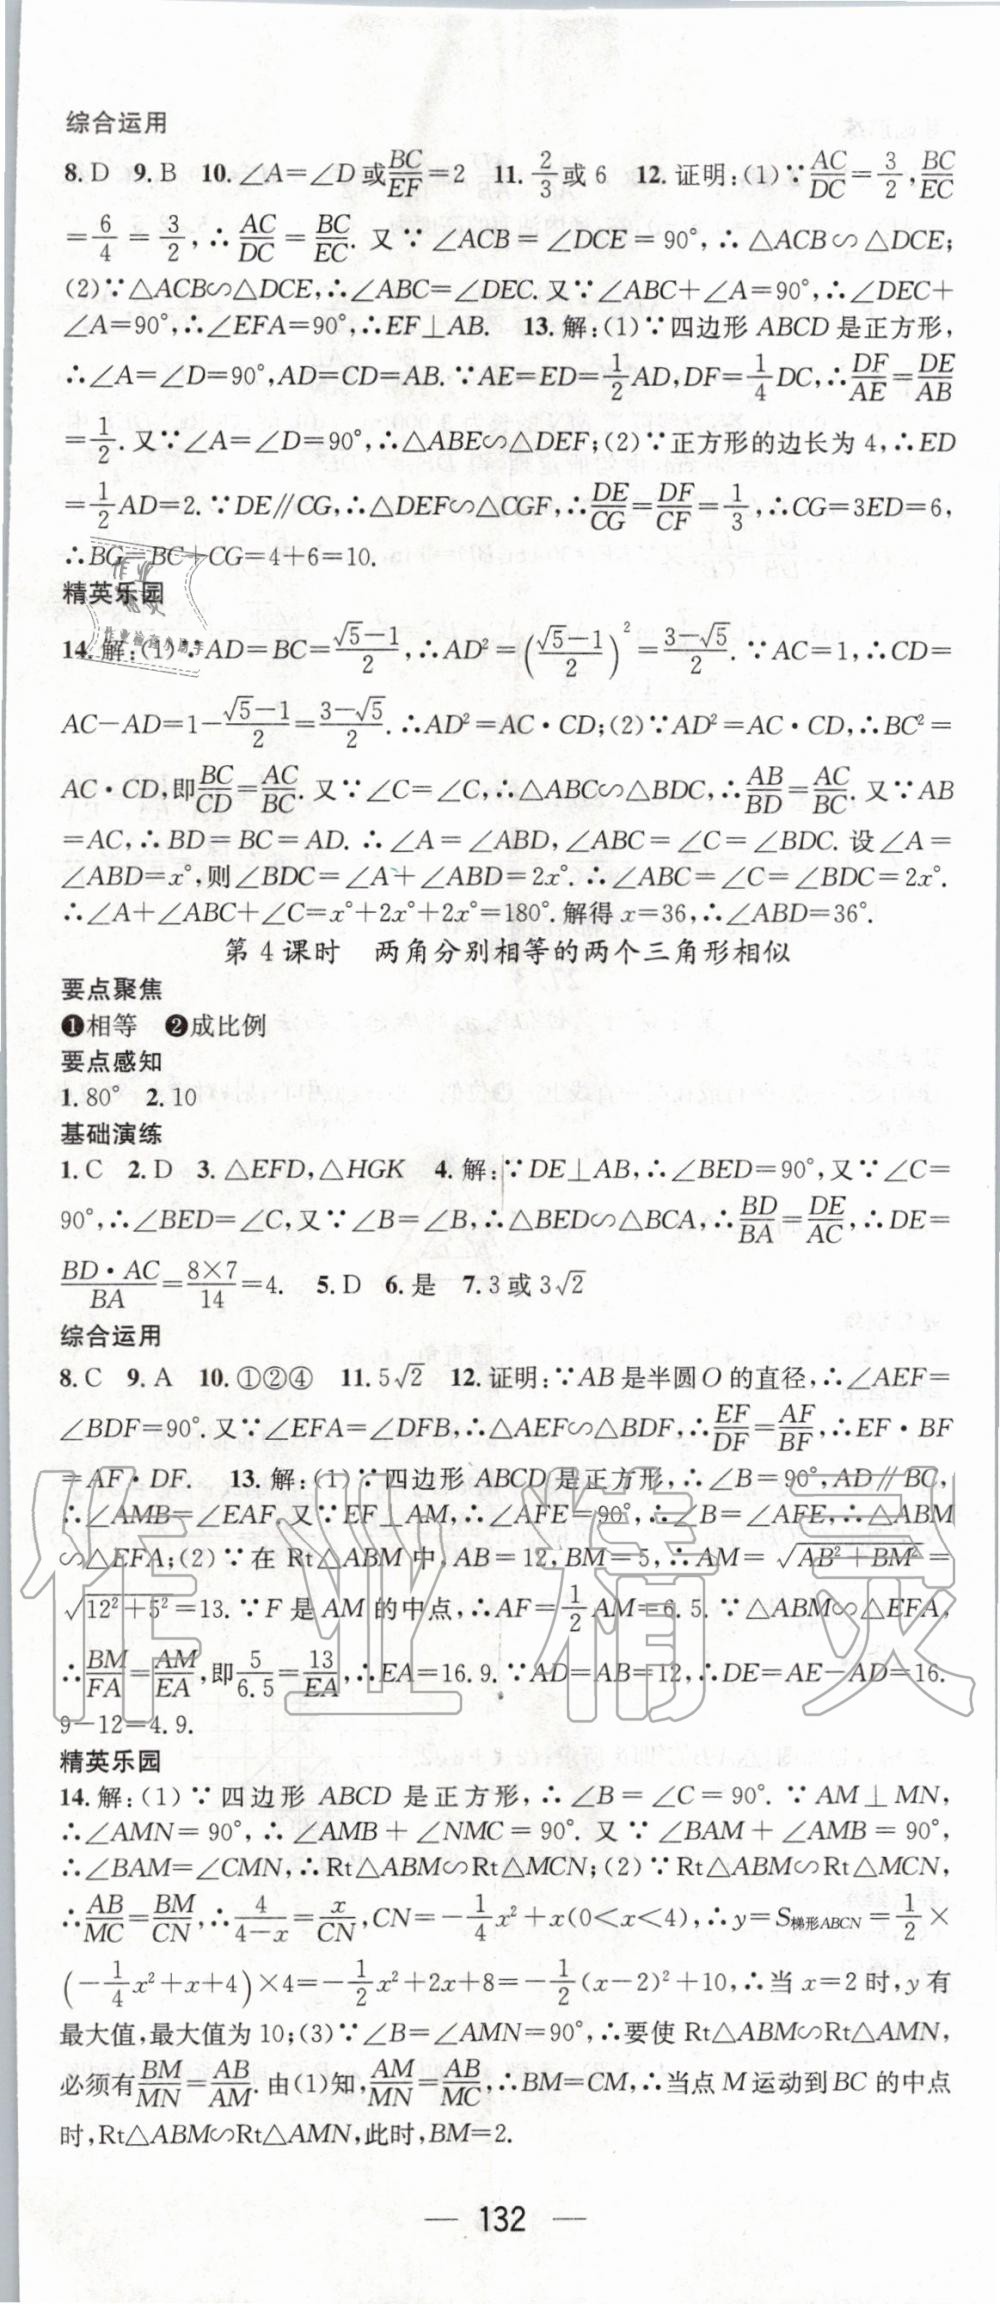 综合运用
8. D　9. B　10. ∠A=∠D或BC/EF=2　11. 2/3或6　12. 证明:(1)∵AC/DC=3/2,BC/EC
=6/4=3/2,∴AC/DC=BC/EC. 又∵∠ACB=∠DCE=90°,∴△ACB∽△DCE;
(2)∵△ACB∽△DCE,∴∠ABC=∠DEC. 又∵∠ABC+∠A=90°,∴∠DEC+
∠A=90°,∴∠EFA=90°,∴EF⊥AB.　13. 解:(1)∵四边形ABCD是正方形,
∴∠A=∠D=90°,AD=CD=AB. ∵AE=ED=1/2AD,DF=1/4DC,∴DF/AE=DE/AB
=1/2. 又∵∠A=∠D=90°,∴△ABE∽△DEF;(2)∵正方形的边长为4,∴ED
=1/2AD=2. ∵DE∥CG,∴△DEF∽△CGF,∴DE/CG=DF/CF=1/3,∴CG=3ED=6,
∴BG=BC+CG=4+6=10.
精英乐园
14. 解:(1)∵AD=BC=(√5-1)/2,∴AD²=((√5-1)/2)²=(3-√5)/2. ∵AC=1,∴CD=
AC-AD=1-(√5-1)/2=(3-√5)/2. ∴AD²=AC·CD;(2)∵AD²=AC·CD,∴BC²=
AC·CD,即BC/CD=AC/BC. 又∵∠C=∠C,∴△ABC∽△BDC,∴AB/BD=AC/BC. 又∵AB
=AC,∴BD=BC=AD. ∴∠A=∠ABD,∠ABC=∠C=∠BDC. 设∠A=
∠ABD=x°,则∠BDC=∠A+∠ABD=2x°. ∴∠ABC=∠C=∠BDC=2x°.
∴∠A+∠ABC+∠C=x°+2x°+2x°=180°. 解得x=36,∴∠ABD=36°.
第4课时　两角分别相等的两个三角形相似
要点聚焦
❶相等　❷成比例
要点感知
1. 80°　2. 10
基础演练
1. C　2. D　3. △EFD,△HGK　4. 解:∵DE⊥AB,∴∠BED=90°,又∵∠C=
90°,∴∠BED=∠C,又∵∠B=∠B,∴△BED∽△BCA,∴BD/BA=DE/AC,∴DE=
BD·AC/BA=8×7/14=4.　5. D　6. 是　7. 3或3√2
综合运用
8. C　9. A　10. ①②④　11. 5√2　12. 证明:∵AB是半圆O的直径,∴∠AEF=
∠BDF=90°. 又∵∠EFA=∠DFB,∴△AEF∽△BDF,∴EF/DF=AF/BF,∴EF·BF
=AF·DF.　13. 解:(1)∵四边形ABCD是正方形,∴∠B=90°,AD∥BC,
∴∠AMB=∠EAF. 又∵EF⊥AM,∴∠AFE=90°,∴∠B=∠AFE,∴△ABM
∽△EFA;(2)∵在Rt△ABM中,AB=12,BM=5,∴AM=√(AB²+BM²)=
√(12²+5²)=13. ∵F是AM的中点,∴AF=1/2AM=6.5. ∵△ABM∽△EFA,
∴BM/FA=AM/EA,即5/6.5=13/EA,∴EA=16.9. ∵AD=AB=12,∴DE=AE-AD=16.
9-12=4.9.
精英乐园
14. 解:(1)∵四边形ABCD是正方形,∴∠B=∠C=90°. ∵AM⊥MN,
∴∠AMN=90°,∴∠AMB+∠NMC=90°. 又∵∠BAM+∠AMB=90°,
∴∠BAM=∠CMN,∴Rt△ABM∽Rt△MCN;(2)∵Rt△ABM∽Rt△MCN,
∴AB/MC=BM/CN,∴4/(4-x)=x/CN,CN=-1/4x²+x(0<x<4),∴y=S梯形ABCN=1/2×
(-1/4x²+x+4)×4=-1/2x²+2x+8=-1/2(x-2)²+10,∴当x=2时,y有
最大值,最大值为10;(3)∵∠B=∠AMN=90°,∴要使Rt△ABM∽Rt△AMN,
必须有BM/MN=AB/AM. 由(1)知,AM/MN=AB/MC,∴BM=CM,∴当点M运动到BC的中点
时,Rt△ABM∽Rt△AMN,此时,BM=2.
132
作业精灵